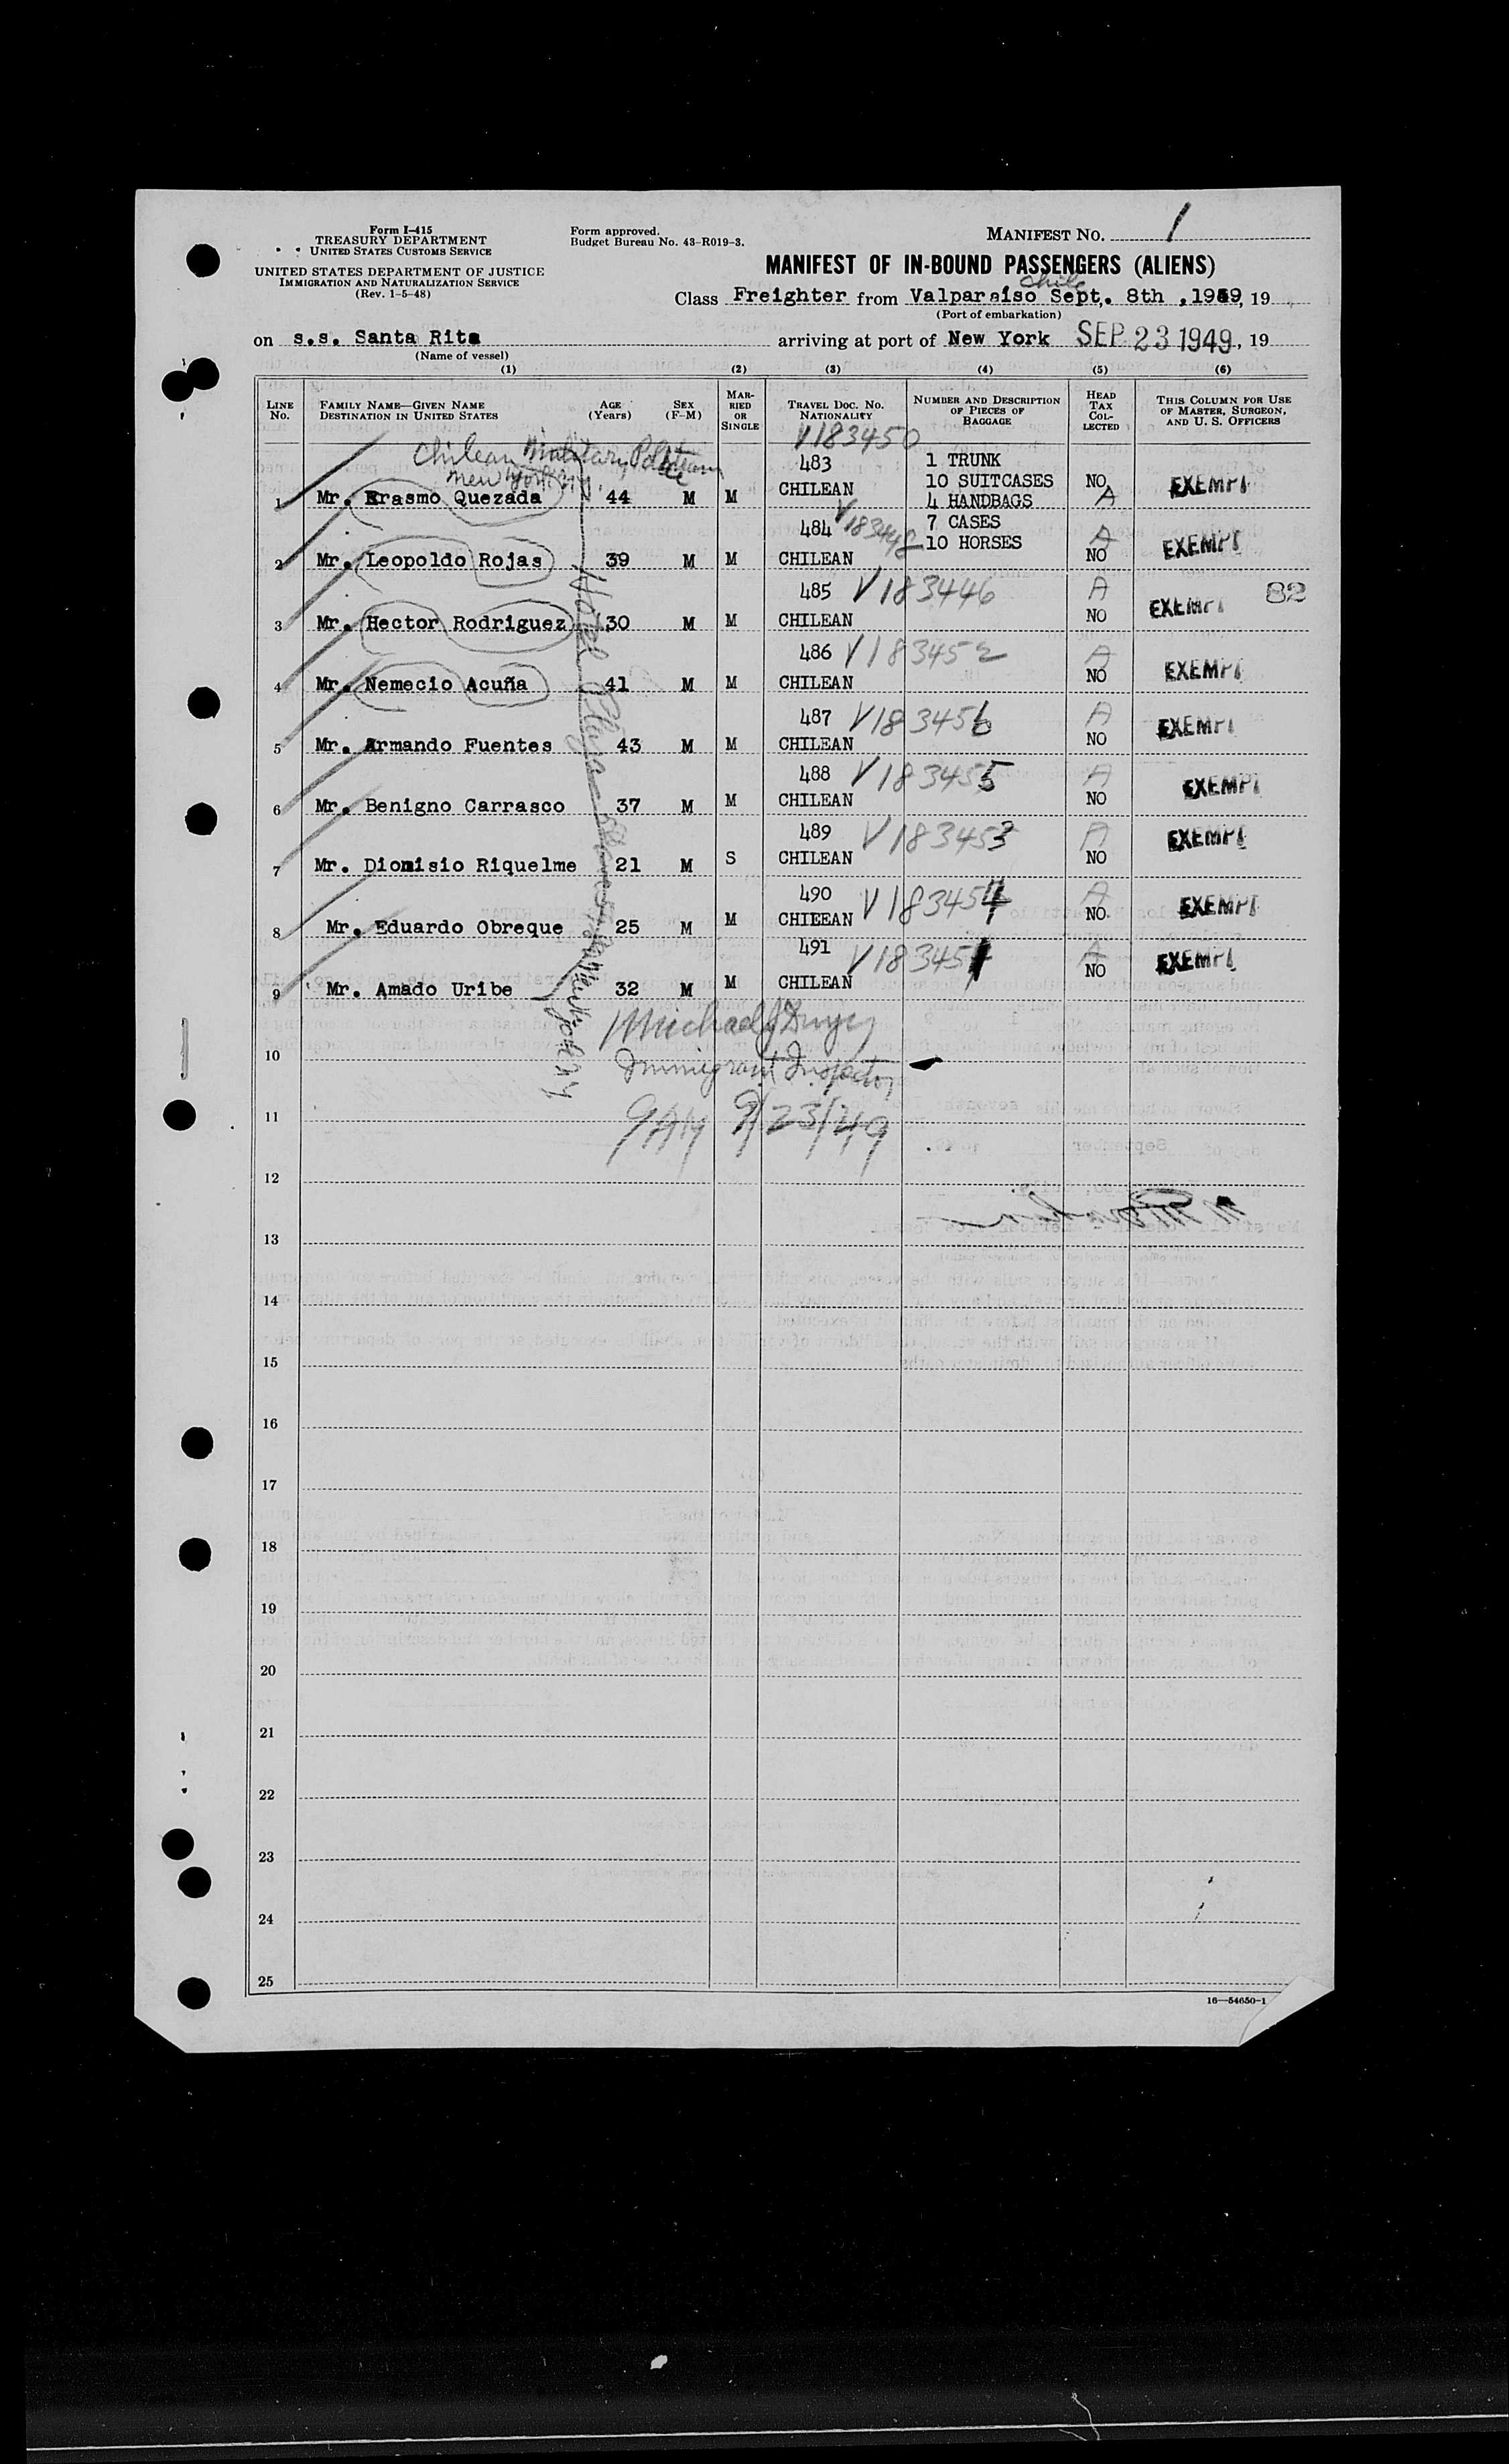 Form I-415
TREASURY DEPARTMENT
UNITED STATES CUSTOMS SERVICE
UNITED STATES DEPARTMENT OF JUSTICE
IMMIGRATION AND NATURALIZATION SERVICE
(Rev. 1-5-48)
Form approved.
Budget Bureau No. 43-R019-3.
MANIFEST NO. 1
MANIFEST OF IN-BOUND PASSENGERS (ALIENS)
Chile
Class Freighter from Valparaiso Sept. 8th, 1949, 19
(Port of embarkation)
on s.s. Santa Rita arriving at port of New York SEP 23 1949, 19
(Name of vessel)
(1) (2) (3) (4) (5) (6)
LINE NO. FAMILY NAME—GIVEN NAME DESTINATION IN UNITED STATES AGE (Years) SEX (F-M) MARRIED OR SINGLE TRAVEL DOC. NO. NATIONALITY NUMBER AND DESCRIPTION OF PIECES OF BAGGAGE HEAD TAX COLLECTED THIS COLUMN FOR USE OF MASTER, SURGEON, AND U. S. OFFICERS
V183450
Chilean Military Team
Police
New York
483 1 TRUNK
10 SUITCASES
1 Mr. Erasmo Quezada 44 M M CHILEAN 4 HANDBAGS NO A EXEMPT
484 V183448 7 CASES
2 Mr. Leopoldo Rojas 39 M M CHILEAN 10 HORSES A NO EXEMPT
485 V183446 A 82
3 Mr. Hector Rodriguez 30 M M CHILEAN NO EXEMPT
486 V183452 A
4 Mr. Nemecio Acuña 41 M M CHILEAN NO EXEMPT
487 V183456 A
5 Mr. Armando Fuentes 43 M M CHILEAN NO EXEMPT
488 V183455 A
6 Mr. Benigno Carrasco 37 M M CHILEAN NO EXEMPT
489 V183453 A
7 Mr. Dionisio Riquelme 21 M S CHILEAN NO EXEMPT
490 V183454 A
8 Mr. Eduardo Obreque 25 M M CHIEEAN NO. EXEMPT
491 V183451 A
9 Mr. Amado Uribe 32 M M CHILEAN NO EXEMPT
Hotel Plaza New York NY
Michael J Dwyer
10
Immigrant Inspector
11
9/23/49
12
13
14
15
16
17
18
19
20
21
22
23
24
25
16—54650-1